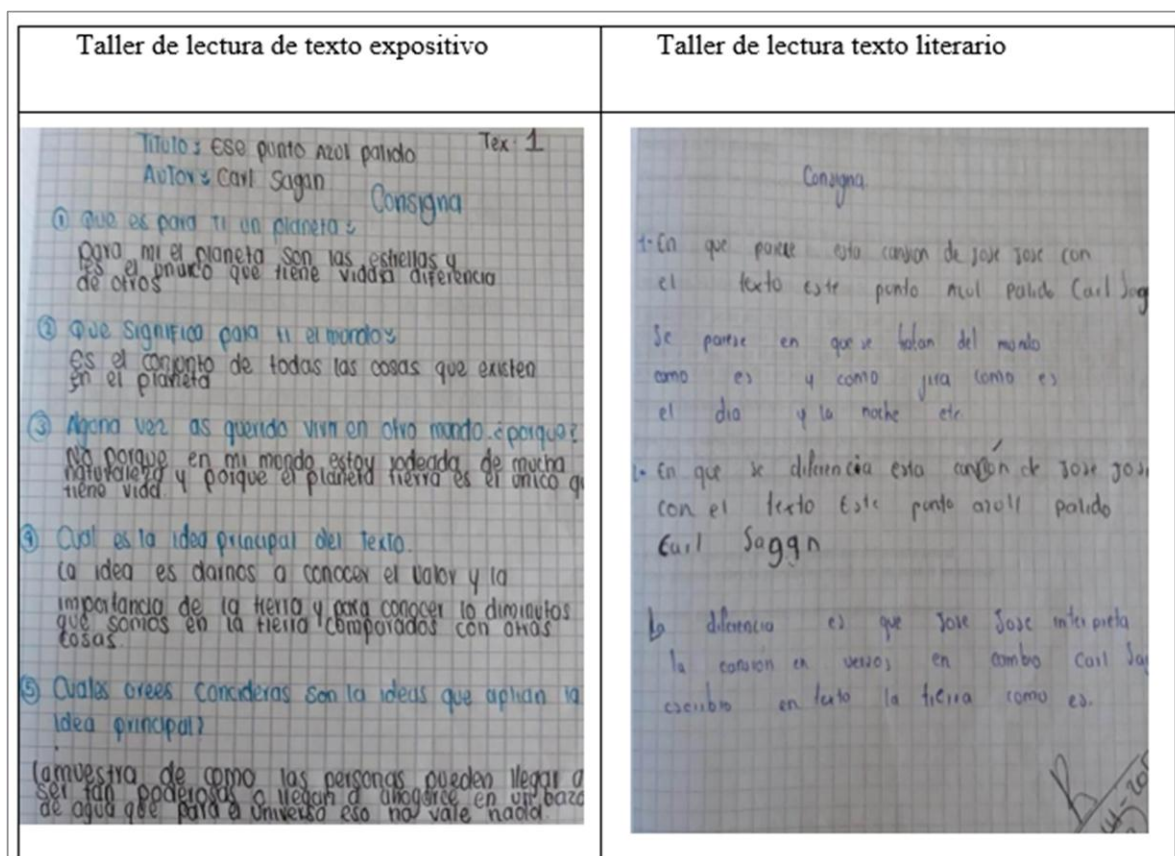 Taller de lectura de texto expositivo
Taller de lectura texto literario
Titulo: Ese punto Azol palido Tex: 1
Autor: Carl Sagan
Consigna
① Que es para Ti un planeta:
para mi el planeta son las estrellas y
es el unuco que tiene vida diferencia
de otros
② Que significa para ti el mondo:
es el conjonto de todas las cosas que existen
en el planeta
③ Algona vez as querido vivir en otro mundo. ¿porque?
No porque en mi mondo estoy rodeada de mucha
naturaleza y porque el planeta tierra es el unico q
tiene vida
④ Cual es la idea principal del Texto.
la idea es darnos a conocer el valor y la
importancia de la tierra y para conocer lo diminutos
que somos en la tierra comparados con otras
cosas.
⑤ Cuales crees concideras son la ideas que aplian la
idea principal?
la muestra de como las personas pueden llegar a
ser tan poderosas o llegan a ahogarce en un bazo
de agua que para el universo eso no vale nada.
Consigna
1. En que parece esta canson de jose Jose con
el texto este ponto Azul palido Carl Sag
Se parese en que se tratan del mondo
como es y como jira como es
el dia y la noche etc.
2. En que se diferencia esta canción de Jose Jos
con el texto Este punto azoll palido
Carl Sagan
La diferencia es que Jose Jose interpreta
la cansion en versos en cambio Carl Sa
escribio en texto la tierra como es.